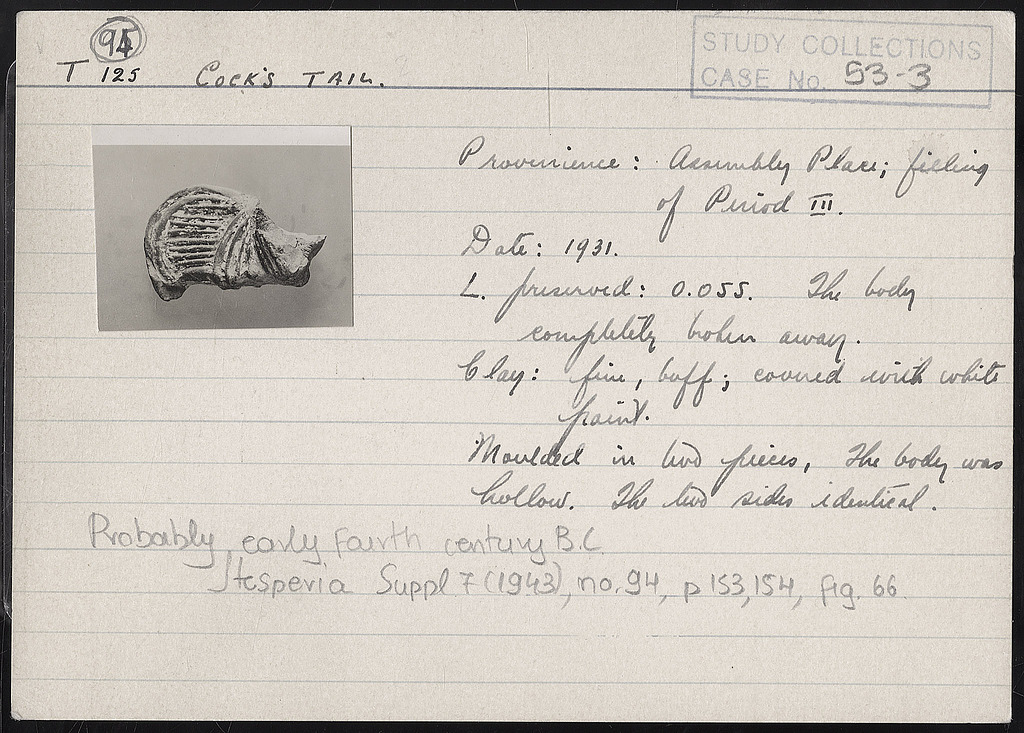 94
T 125 COCK'S TAIL.
STUDY COLLECTIONS
CASE No. 53-3
Provenience: Assembly Place; filling
of Period III.
Date: 1931.
L. preserved: 0.055. The body
completely broken away.
Clay: fine, buff; covered with white
paint.
Moulded in two pieces, The body was
hollow. The two sides identical.
Probably early Fourth century B.C.
Hesperia Suppl 7 (1943), no. 94, p 153, 154, fig. 66